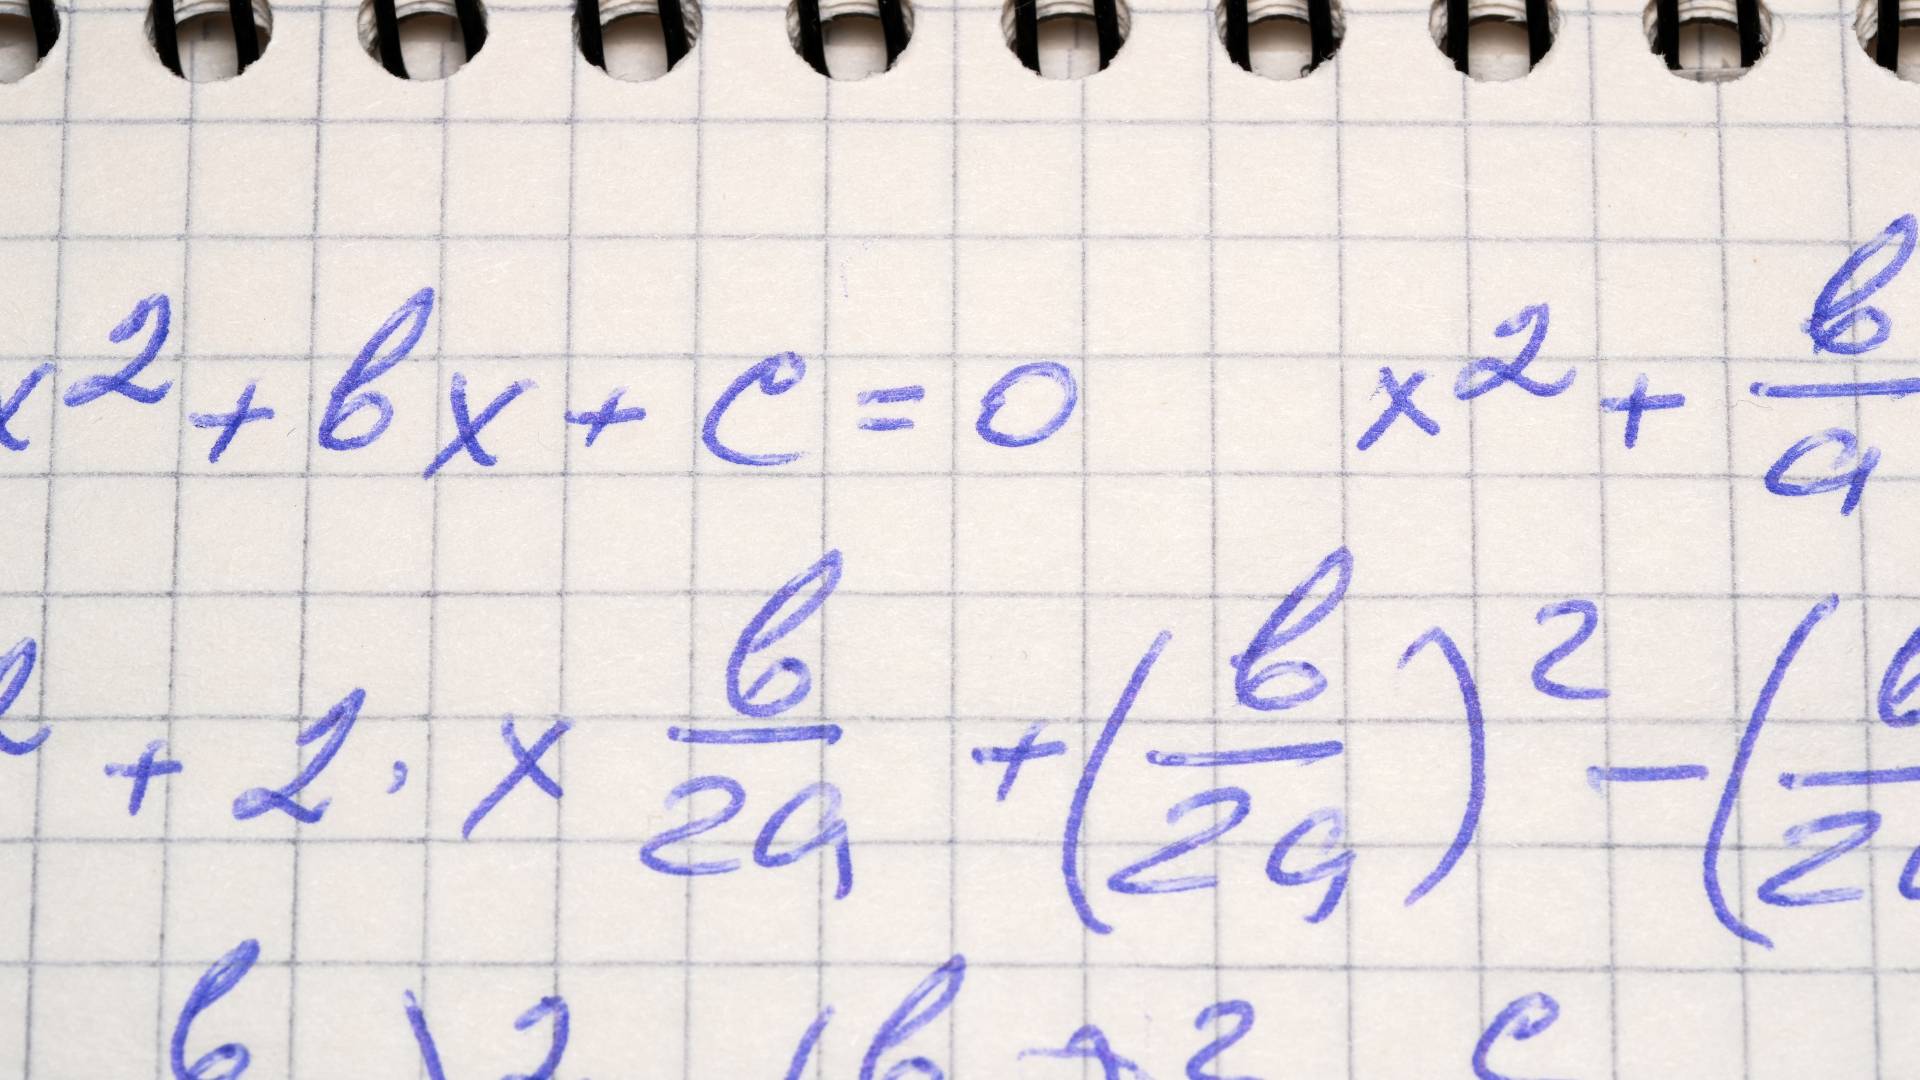 x² + bx + c = 0 x² + b/a
² + 2 · x b/2a + (b/2a)² − (b/2a
b ) 2 ( b 2 c